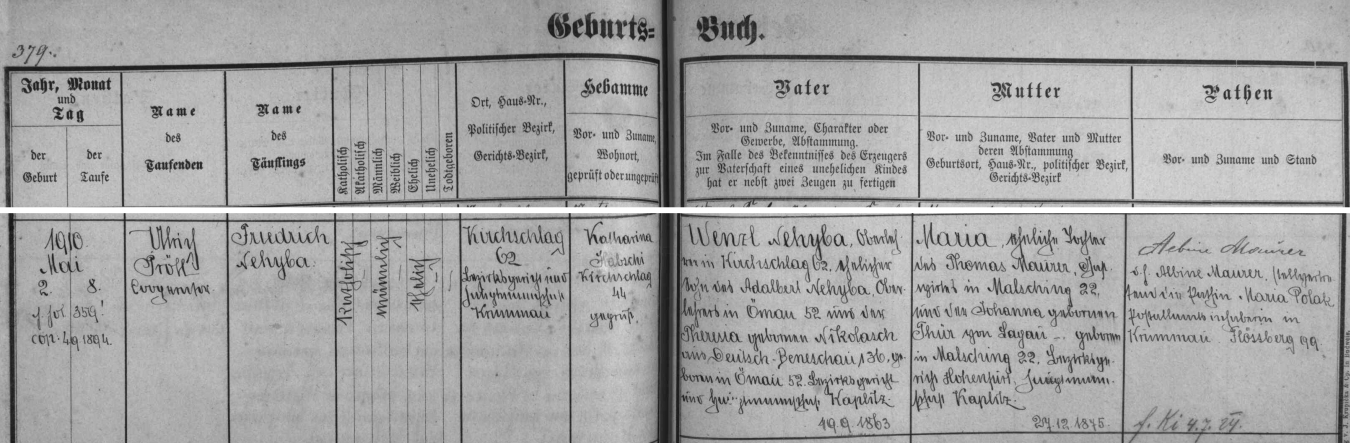 Geburts= Buch.
379.
Jahr, Monat
und
Tag
der
Geburt
der
Taufe
Name
des
Taufenden
Name
des
Täuflings
Katholisch
Akatholisch
Männlich
Weiblich
Ehelich
Unehelich
Todtgeboren
Ort, Haus-Nr.,
Politischer Bezirk,
Gerichts-Bezirk,
Hebamme
Vor- und Zuname,
Wohnort,
geprüft oder ungeprüft
Vater
Vor- und Zuname, Charakter oder
Gewerbe, Abstammung.
Im Falle des Bekenntnisses des Erzeugers
zur Vaterschaft eines unehelichen Kindes
hat er nebst zwei Zeugen zu fertigen
Mutter
Vor- und Zuname, Vater und Mutter
deren Abstammung
Geburtsort, Haus-Nr., politischer Bezirk,
Gerichts-Bezirk
Pathen
Vor- und Zuname und Stand
1910.
Mai
2. 8.
cop. 4/9 1894.
Ulrich
Pröll
Cooperator.
Friedrich
Nehyba.
katholisch
männlich
ehelich
Kirchschlag
62
Bezirksgericht und
Krummau
Katharina
Kirchschlag
44
geprüft.
Wenzl Nehyba, Oberleh-
rer in Kirchschlag 62, ehelicher
Sohn des Adalbert Nehyba, Ober-
lehrers in Ömau 52 und der
Theresia geborenen Nikolasch
aus Deutsch-Beneschau 136, ge-
boren in Ömau 52. Bezirksgericht
Kaplitz.
19.9.1863
Maria, eheliche Tochter
des Thomas Maurer, Gast-
wirtes in Malsching 22,
und der Johanna geborenen
Thür von Lagau, geboren
in Malsching 22. Bezirksge-
richt Hohenfurt, Hauptmann-
schaft Kaplitz.
27.12.1875.
Albine Maurer
Albine Maurer, stellvertre-
tend die Pathin Maria Polak
Postamts in
Krummau. Flössberg 99.
4.7.